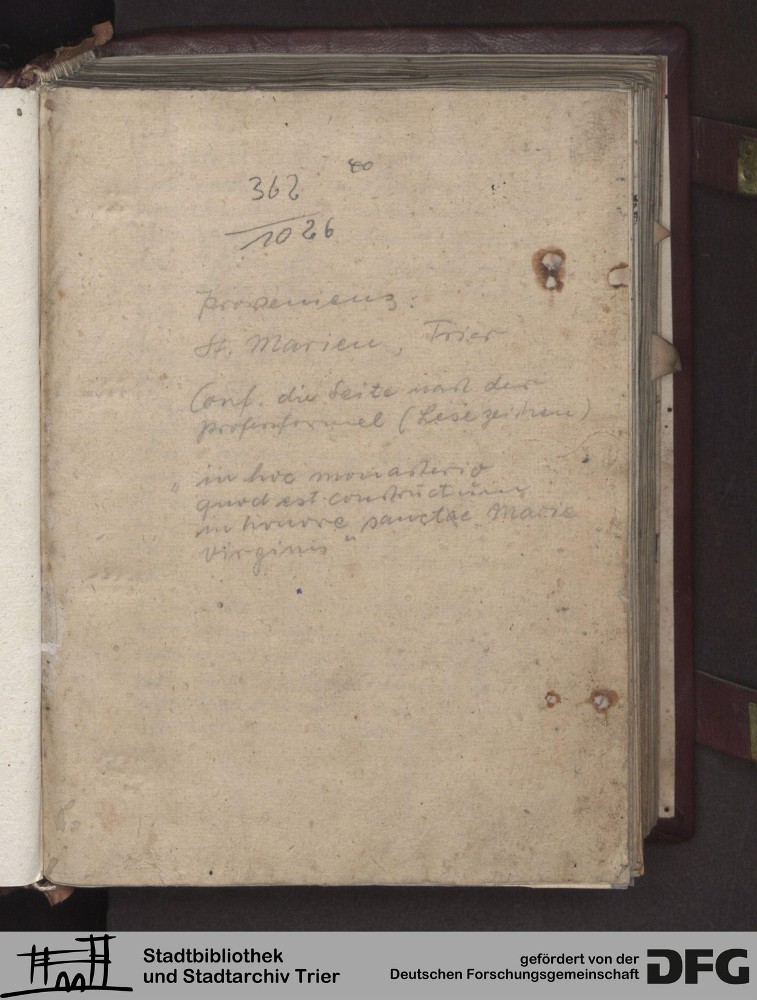 362 8o
1026
Provenienz:
St. Marien, Trier
Conf. die Seite nach der
Professformel (Lesezeichen)
"in hoc monasterio
quod est constructum
in honore sanctae Marie
virginis"
Stadtbibliothek
und Stadtarchiv Trier
gefördert von der
Deutschen Forschungsgemeinschaft
DFG